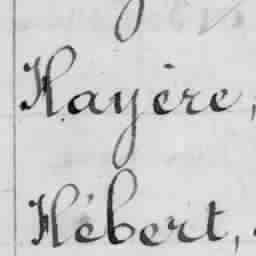 Hayère,
Hébert,